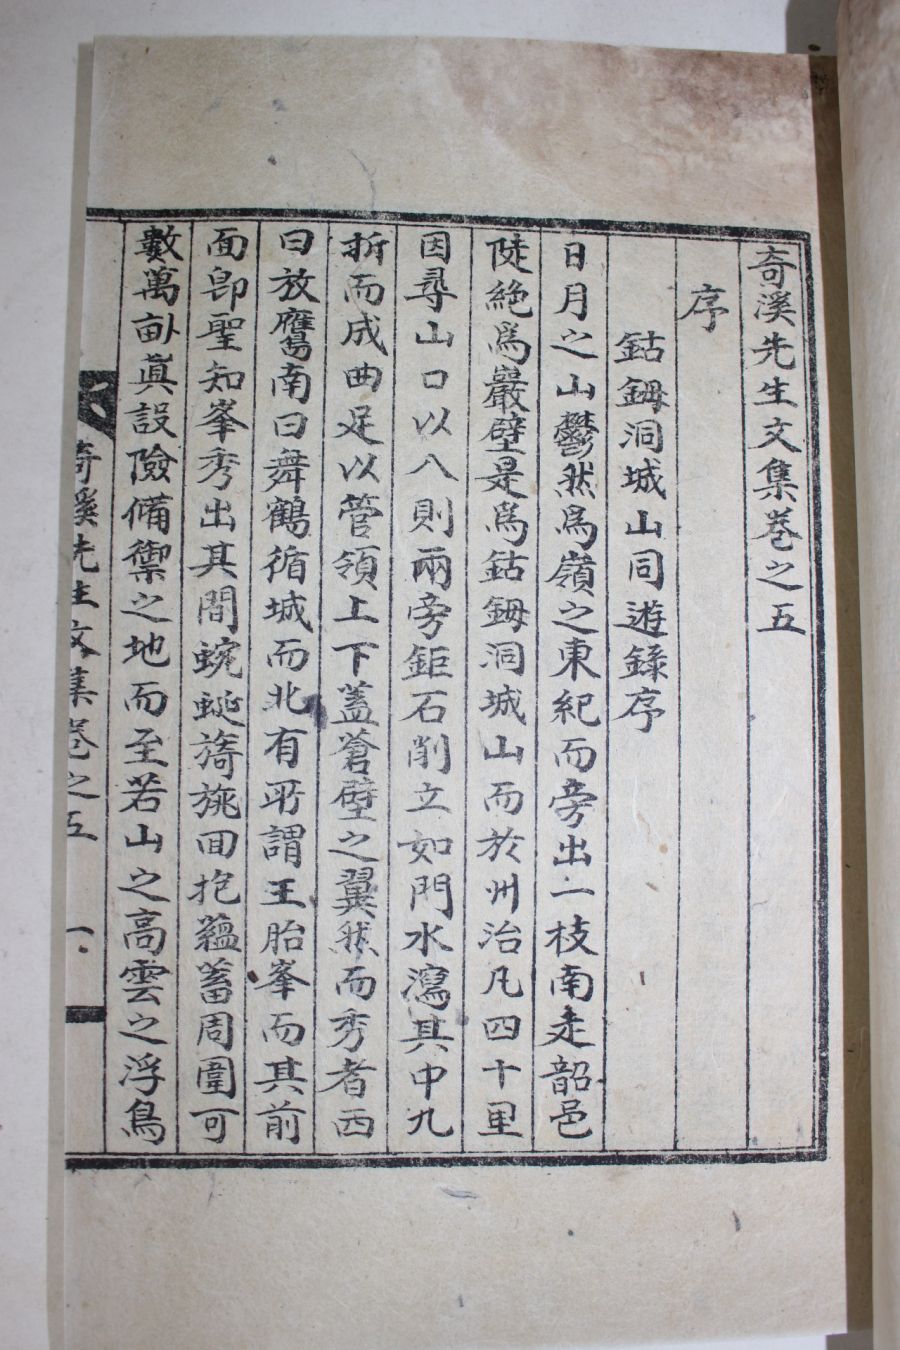 奇溪先生文集巻之五
序
鈷鉧洞城山同遊錄序
日月之山鬱然爲嶺之東紀而旁出一枝南走韶邑
陡絶爲巖壁是爲鈷鉧洞城山而於州治凡四十里
因尋山口以入則兩旁鉅石削立如門水瀉其中九
折而成曲足以管領上下蓋蒼壁之翼然而秀者西
曰放鷹南曰舞鶴循城而北有所謂王胎峯而其前
面卽聖知峯秀出其間蜿蜒旖旎回抱蘊蓄周圍可
數萬畝眞設險備禦之地而至若山之高雲之浮鳥
奇溪先生文集卷之五 一